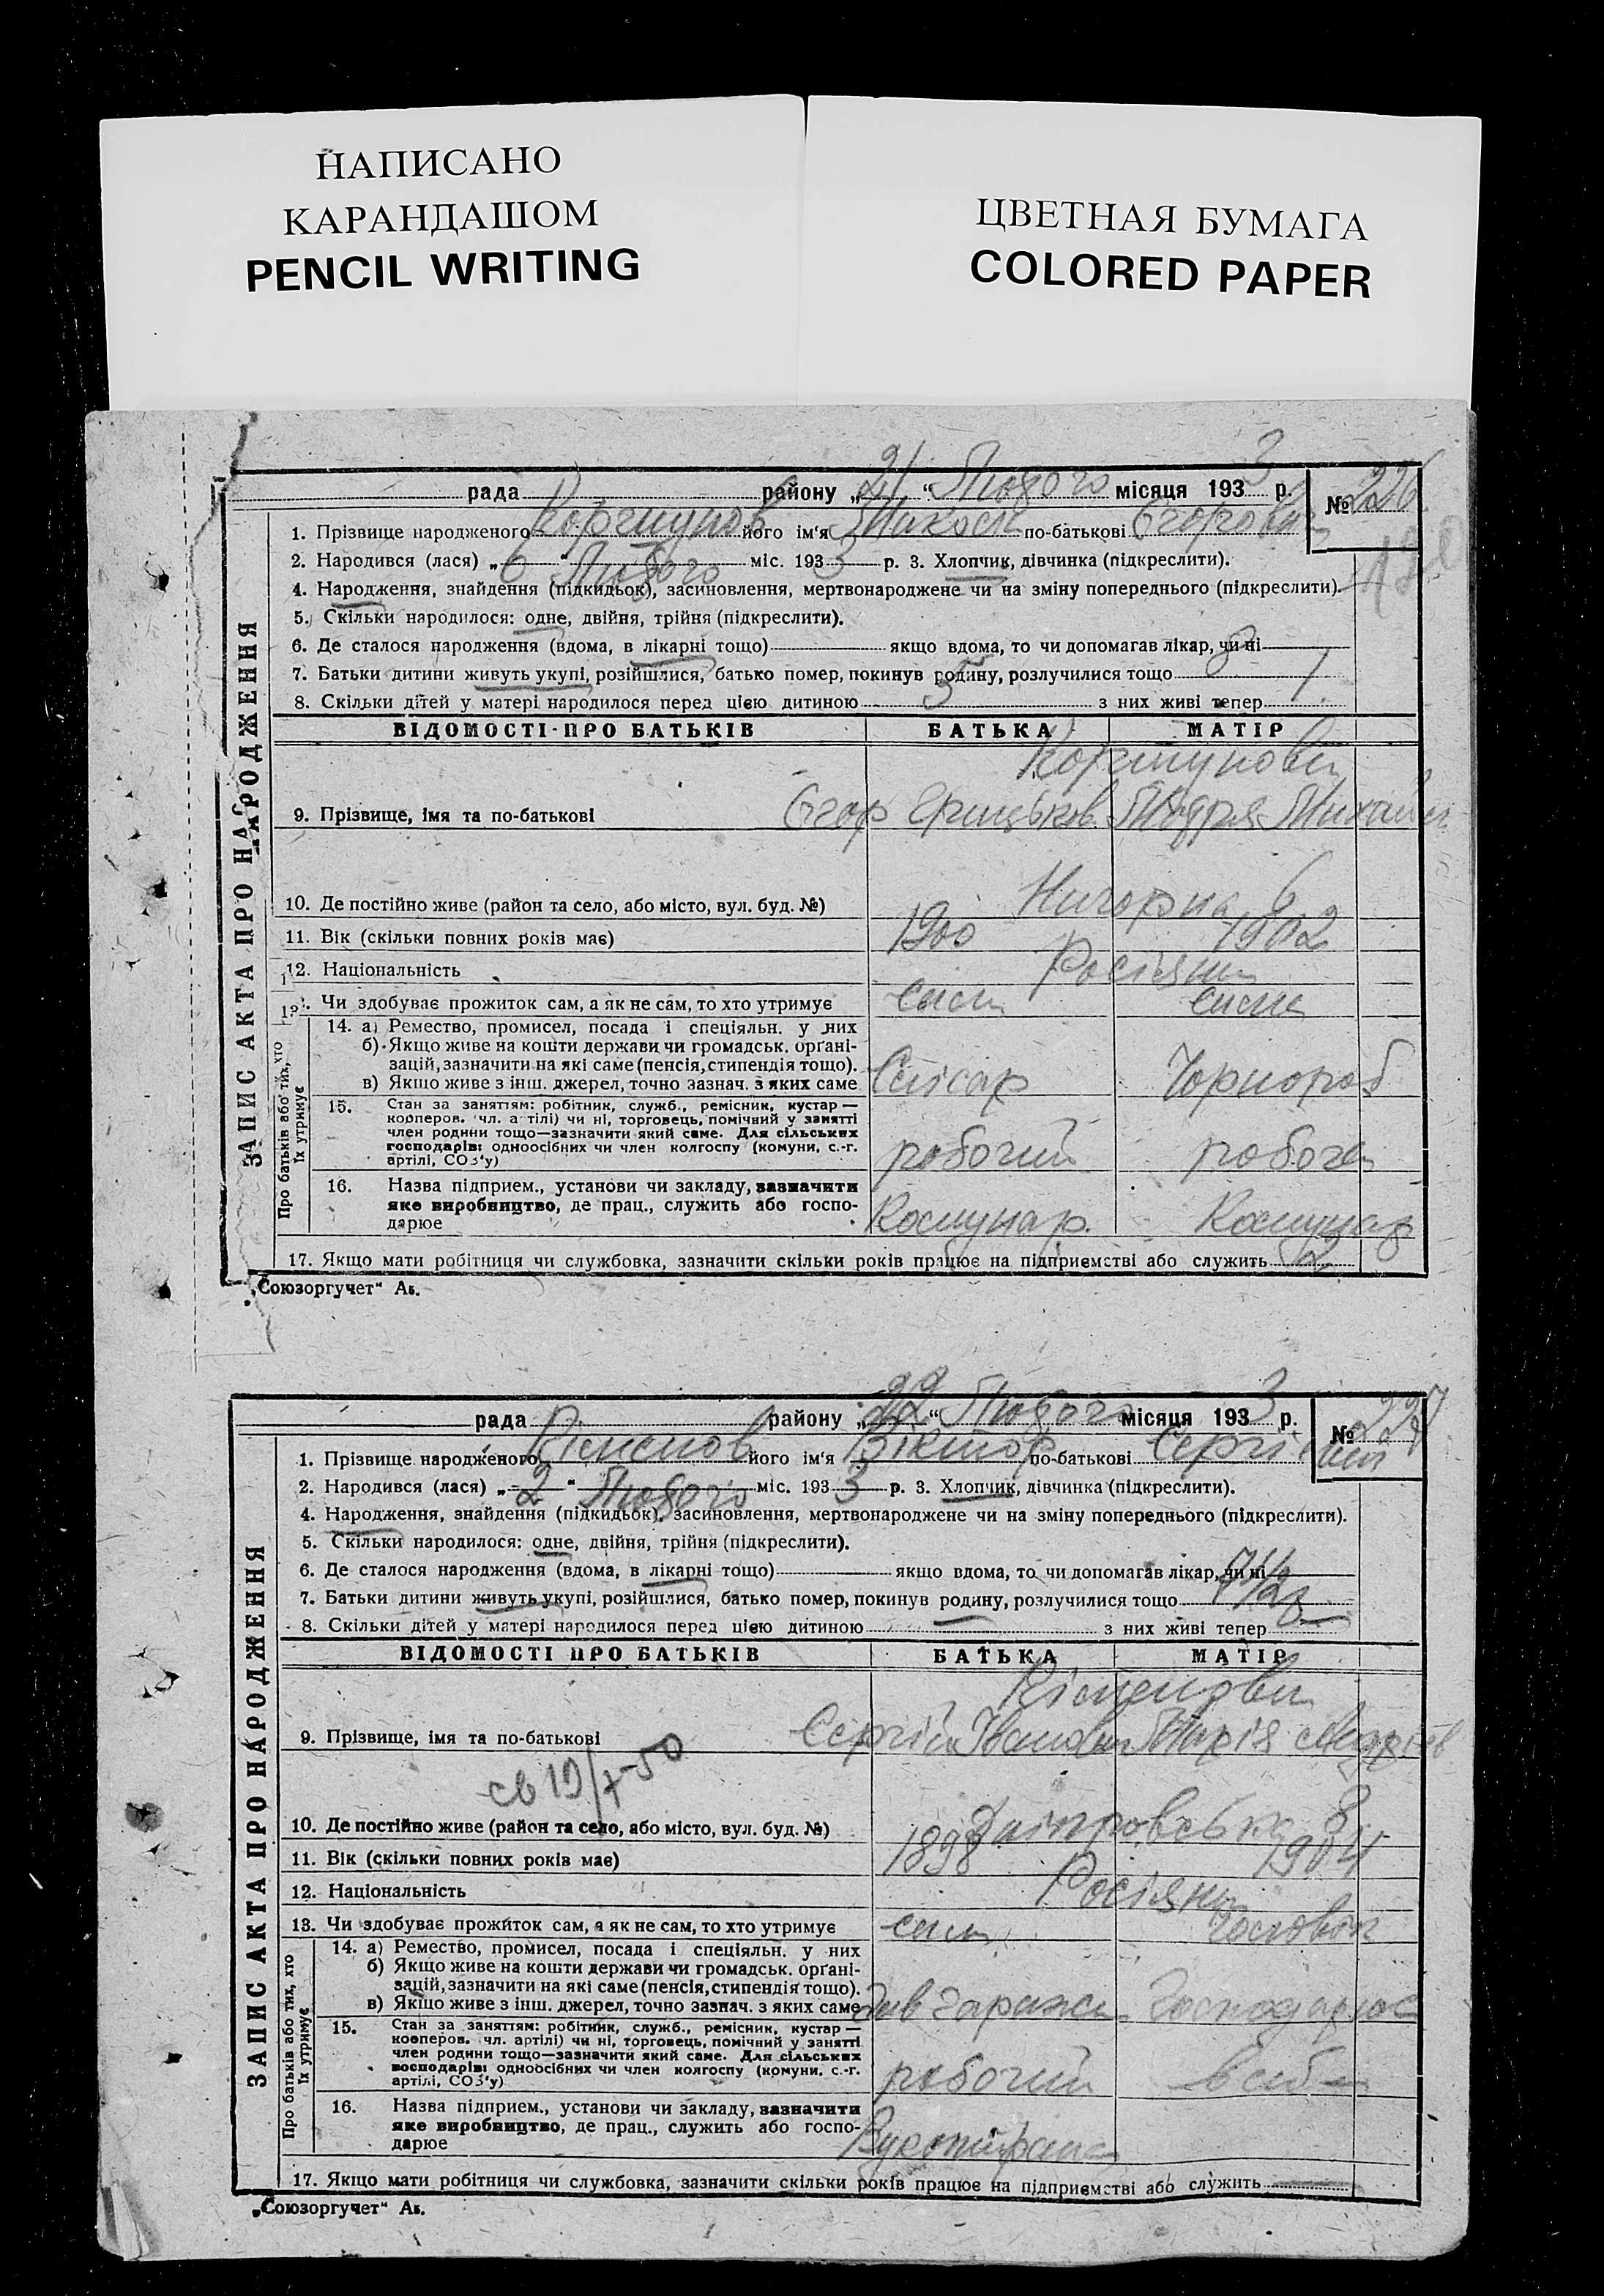 НАПИСАНО
КАРАНДАШОМ
PENCIL WRITING
ЦВЕТНАЯ БУМАГА
COLORED PAPER
ЗАПИС АКТА ПРО НАРОДЖЕННЯ
рада району „21“ Лютого місяця 1933 р. № 226
1. Прізвище народженого Коршунов його ім'я по-батькові Єгорович
2. Народився (лася) „6“ Лютого міс. 1933 р. 3. Хлопчик, дівчинка (підкреслити).
4. Народження, знайдення (підкидьок), засиновлення, мертвонароджене чи на зміну попереднього (підкреслити).
5. Скільки народилося: одне, двійня, трійня (підкреслити).
6. Де сталося народження (вдома, в лікарні тощо) якщо вдома, то чи допомагав лікар, чи ні
7. Батьки дитини живуть укупі, розійшлися, батько помер, покинув родину, розлучилися тощо
8. Скільки дітей у матері народилося перед цією дитиною 3 з них живі тепер 1
ВІДОМОСТІ ПРО БАТЬКІВ БАТЬКА МАТІР
Коршунови
9. Прізвище, імя та по-батькові Єгор
10. Де постійно живе (район та село, або місто, вул. буд. №) Нагорна 6
11. Вік (скільки повних років має) 1900 1902
12. Національність Росіяни
13. Чи здобуває прожиток сам, а як не сам, то хто утримує сам сама
Про батьків або тих, хто їх утримує
14. а) Ремество, промисел, посада і спеціяльн. у них
б) Якщо живе на кошти держави чи громадськ. органі-
зацій, зазначити на які саме (пенсія, стипендія тощо).
в) Якщо живе з інш. джерел, точно зазнач. з яких саме Слісар Чорнороб
15. Стан за заняттям: робітник, служб., ремісник, кустар —
кооперов. чл. артілі) чи ні, торговець, помічний у занятті
член родини тощо—зазначити який саме. Для сільських
господарів: одноосібних чи член колгоспу (комуни, с.-г.
артілі, СОЗ'у) робочий робоча
16. Назва підприєм., установи чи закладу, зазначити
яке виробництво, де прац., служить або госпо-
дарює Комунар Комунар
17. Якщо мати робітниця чи службовка, зазначити скільки років працює на підприємстві або служить 2
„Союзоргучет“ Ав.
ЗАПИС АКТА ПРО НАРОДЖЕННЯ
рада району „22“ Лютого місяця 1933 р. № 227
1. Прізвище народженого його ім'я Віктор по-батькові Сергійов
2. Народився (лася) „2“ Лютого міс. 1933 р. 3. Хлопчик, дівчинка (підкреслити).
4. Народження, знайдення (підкидьок), засиновлення, мертвонароджене чи на зміну попереднього (підкреслити).
5. Скільки народилося: одне, двійня, трійня (підкреслити).
6. Де сталося народження (вдома, в лікарні тощо) якщо вдома, то чи допомагав лікар, чи ні
7. Батьки дитини живуть укупі, розійшлися, батько помер, покинув родину, розлучилися тощо
8. Скільки дітей у матері народилося перед цією дитиною — з них живі тепер —
ВІДОМОСТІ ПРО БАТЬКІВ БАТЬКА МАТІР
9. Прізвище, імя та по-батькові Сергій Іванович Марія
10. Де постійно живе (район та село, або місто, вул. буд. №) Дніпровська 8
11. Вік (скільки повних років має) 1898 1904
12. Національність Росіяни
13. Чи здобуває прожиток сам, а як не сам, то хто утримує сам чоловік
Про батьків або тих, хто їх утримує
14. а) Ремество, промисел, посада і спеціяльн. у них
б) Якщо живе на кошти держави чи громадськ. органі-
зацій, зазначити на які саме (пенсія, стипендія тощо).
в) Якщо живе з інш. джерел, точно зазнач. з яких саме Зав гаража
15. Стан за заняттям: робітник, служб., ремісник, кустар —
кооперов. чл. артілі) чи ні, торговець, помічний у занятті
член родини тощо—зазначити який саме. Для сільських
господарів: одноосібних чи член колгоспу (комуни, с.-г.
артілі, СОЗ'у) робочий
16. Назва підприєм., установи чи закладу, зазначити
яке виробництво, де прац., служить або госпо-
дарює
17. Якщо мати робітниця чи службовка, зазначити скільки років працює на підприємстві або служить —
„Союзоргучет“ Ав.